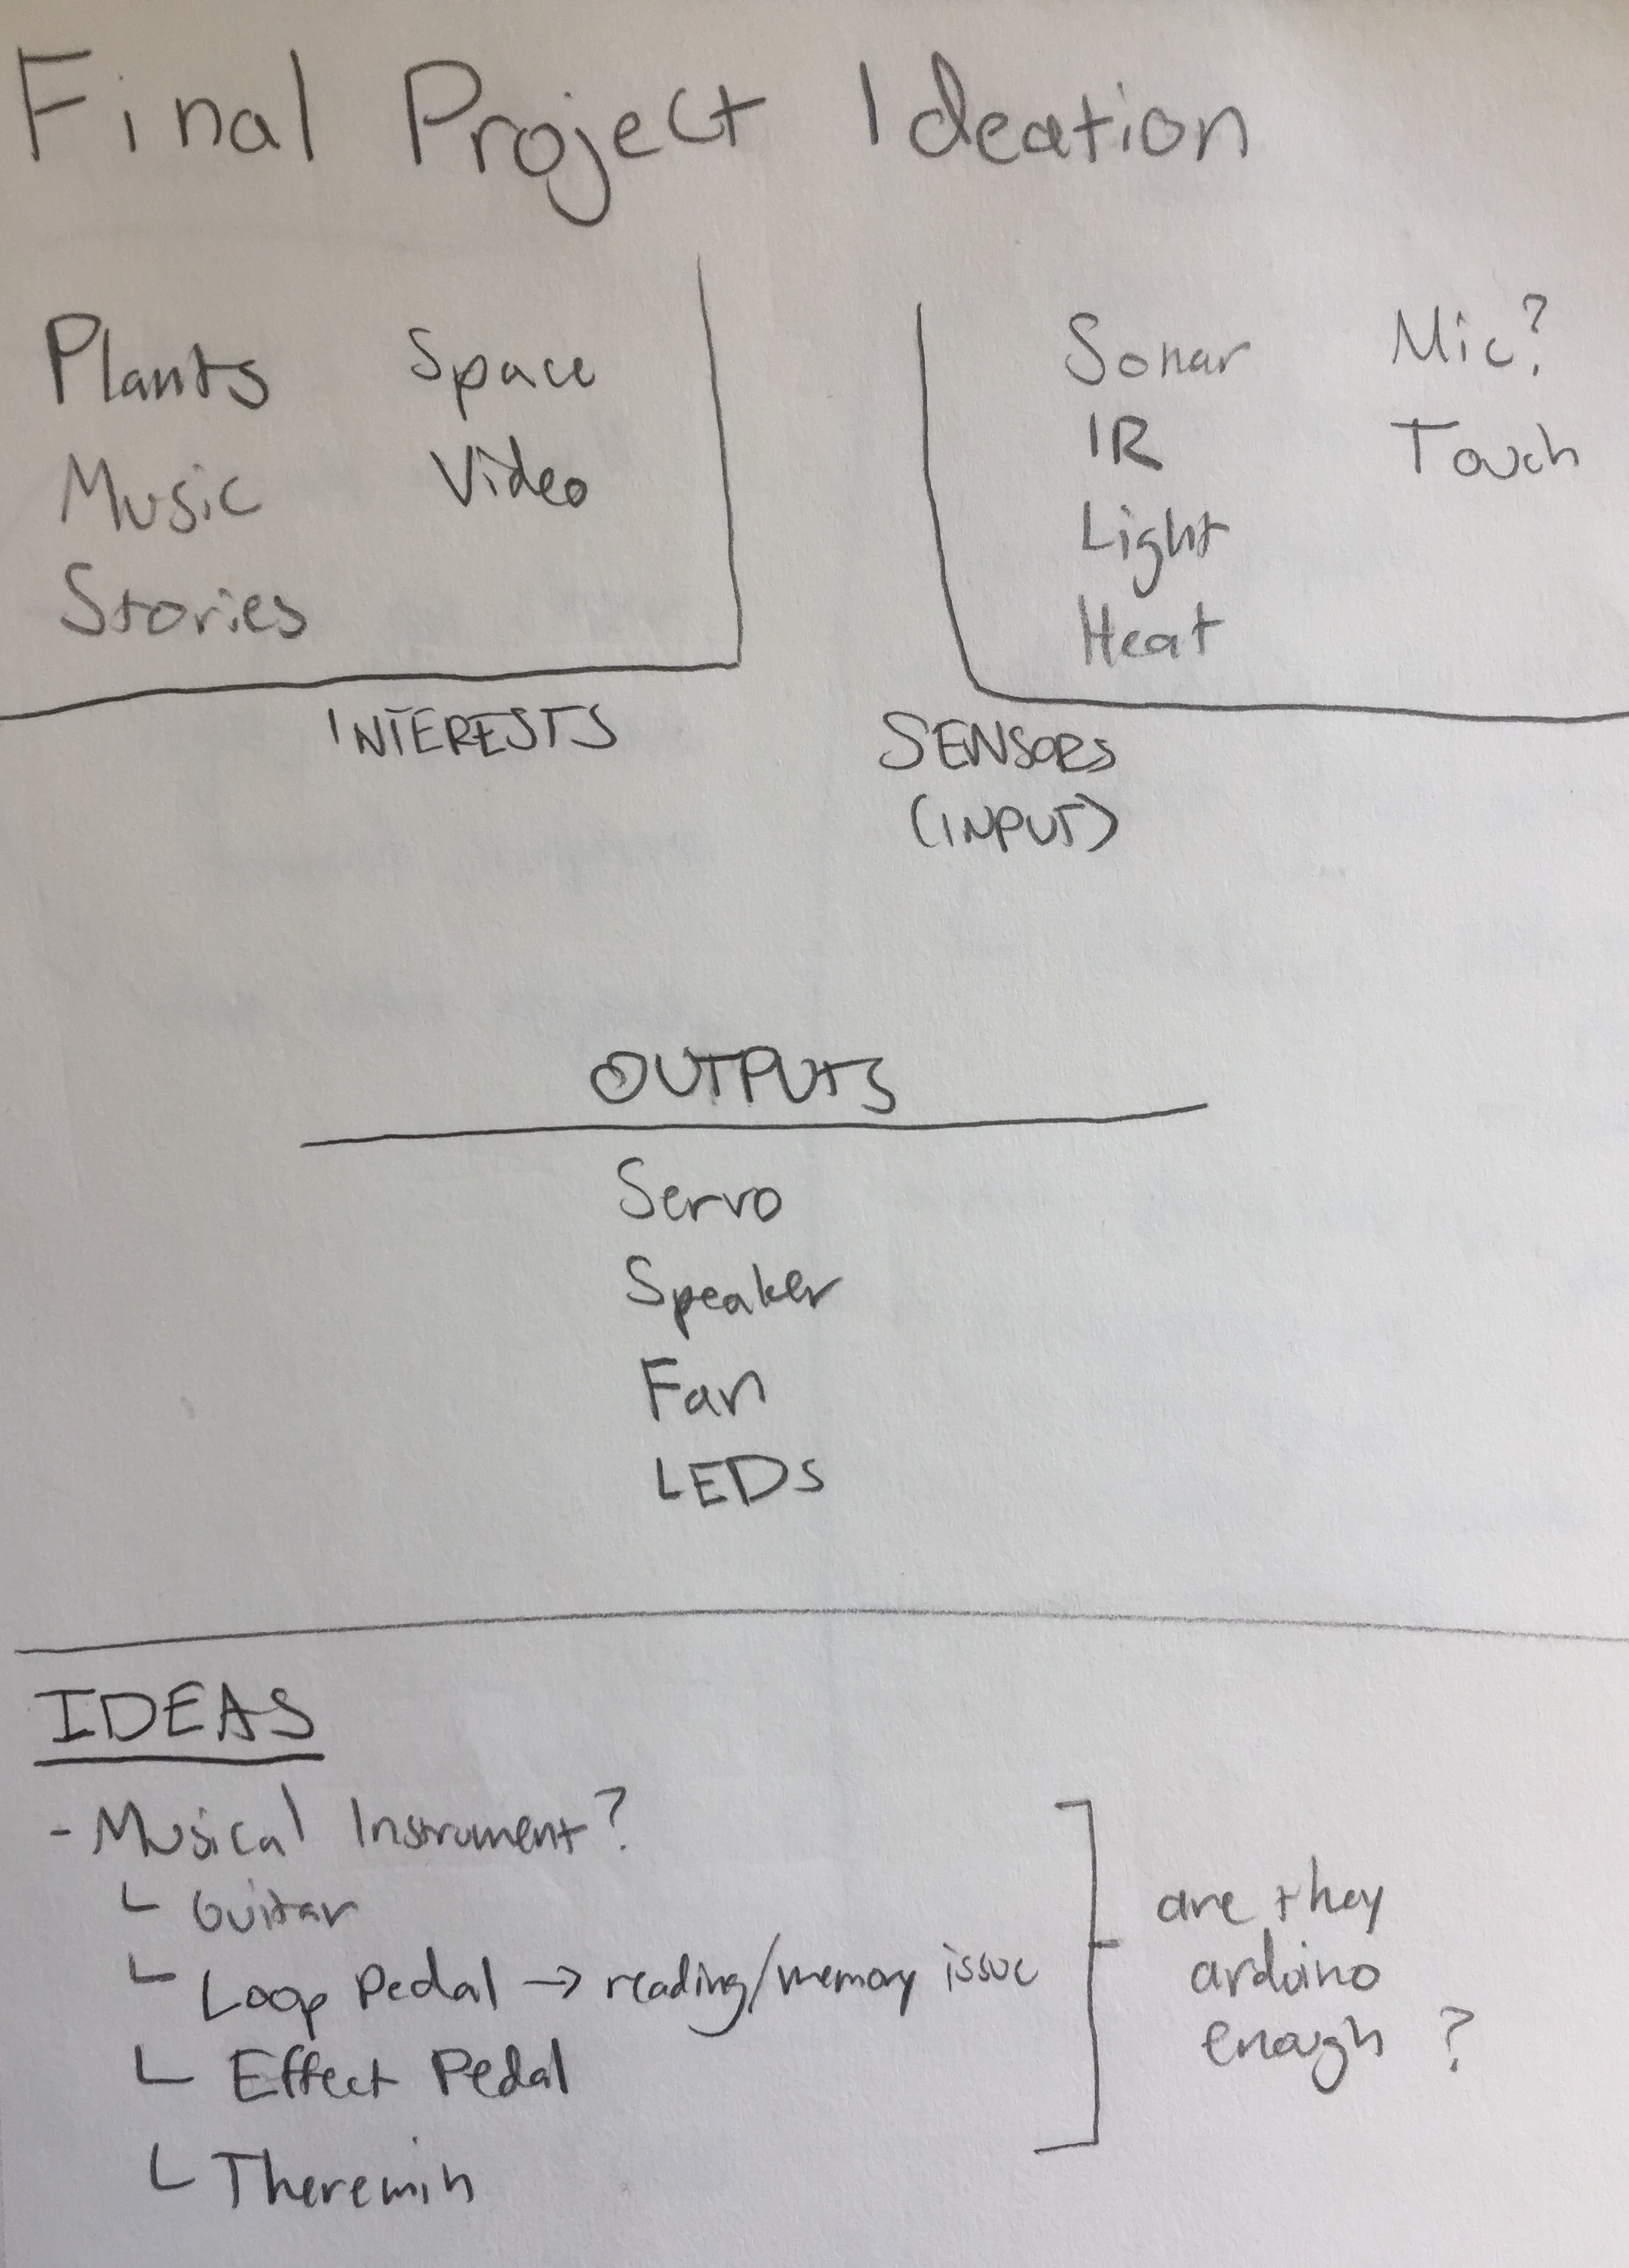 Final Project Ideation
Plants Space
Music Video
Stories
INTERESTS
Sonar Mic?
IR Touch
Light
Heat
SENSORS
(INPUT)
OUTPUTS
Servo
Speaker
Fan
LEDs
IDEAS
- Musical Instrument?
Guitar
Loop Pedal → reading/memory issue
Effect Pedal
Theremin
are they
arduino
enough ?